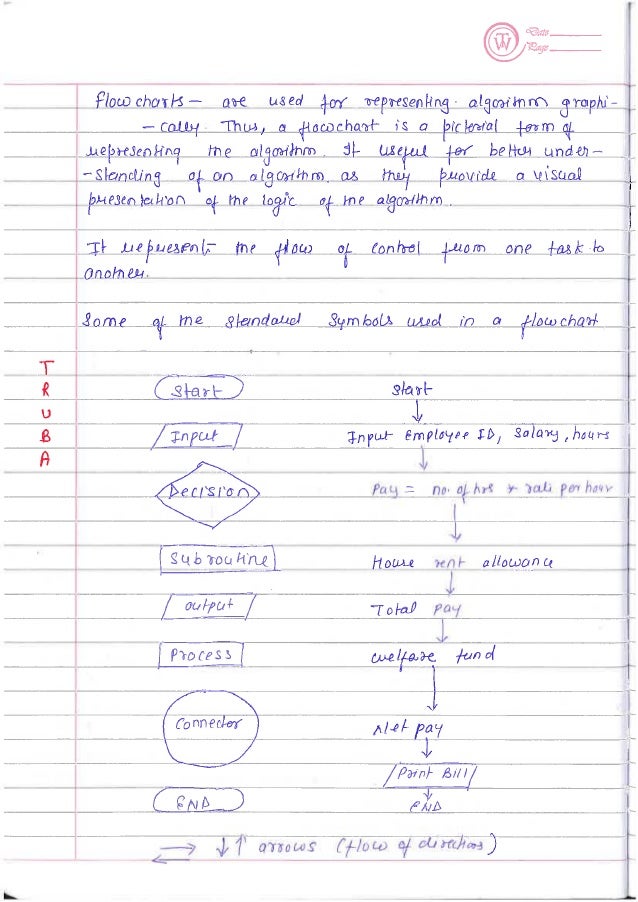 Date
Page
flowcharts – are used for representing algorithm graphi-
- cally. Thus, a flowchart is a pictorial form of
representing the algorithm. It useful for better under-
-standing of an algorithm. as they provide a visual
presentation of the logic of the algorithm.
It represents the flow of control from one task to
another.
Some of the standard symbols used in a flowchart
T
R
U
B
A
Start
Start
Input
Input Employee ID, Salary, hours
Decision
Pay = no. of hrs * rate per hour
Subroutine
House rent allowance
output
Total pay
Process
welfare fund
Connector
Net pay
Print Bill
END
END
arrows (flow of directions)